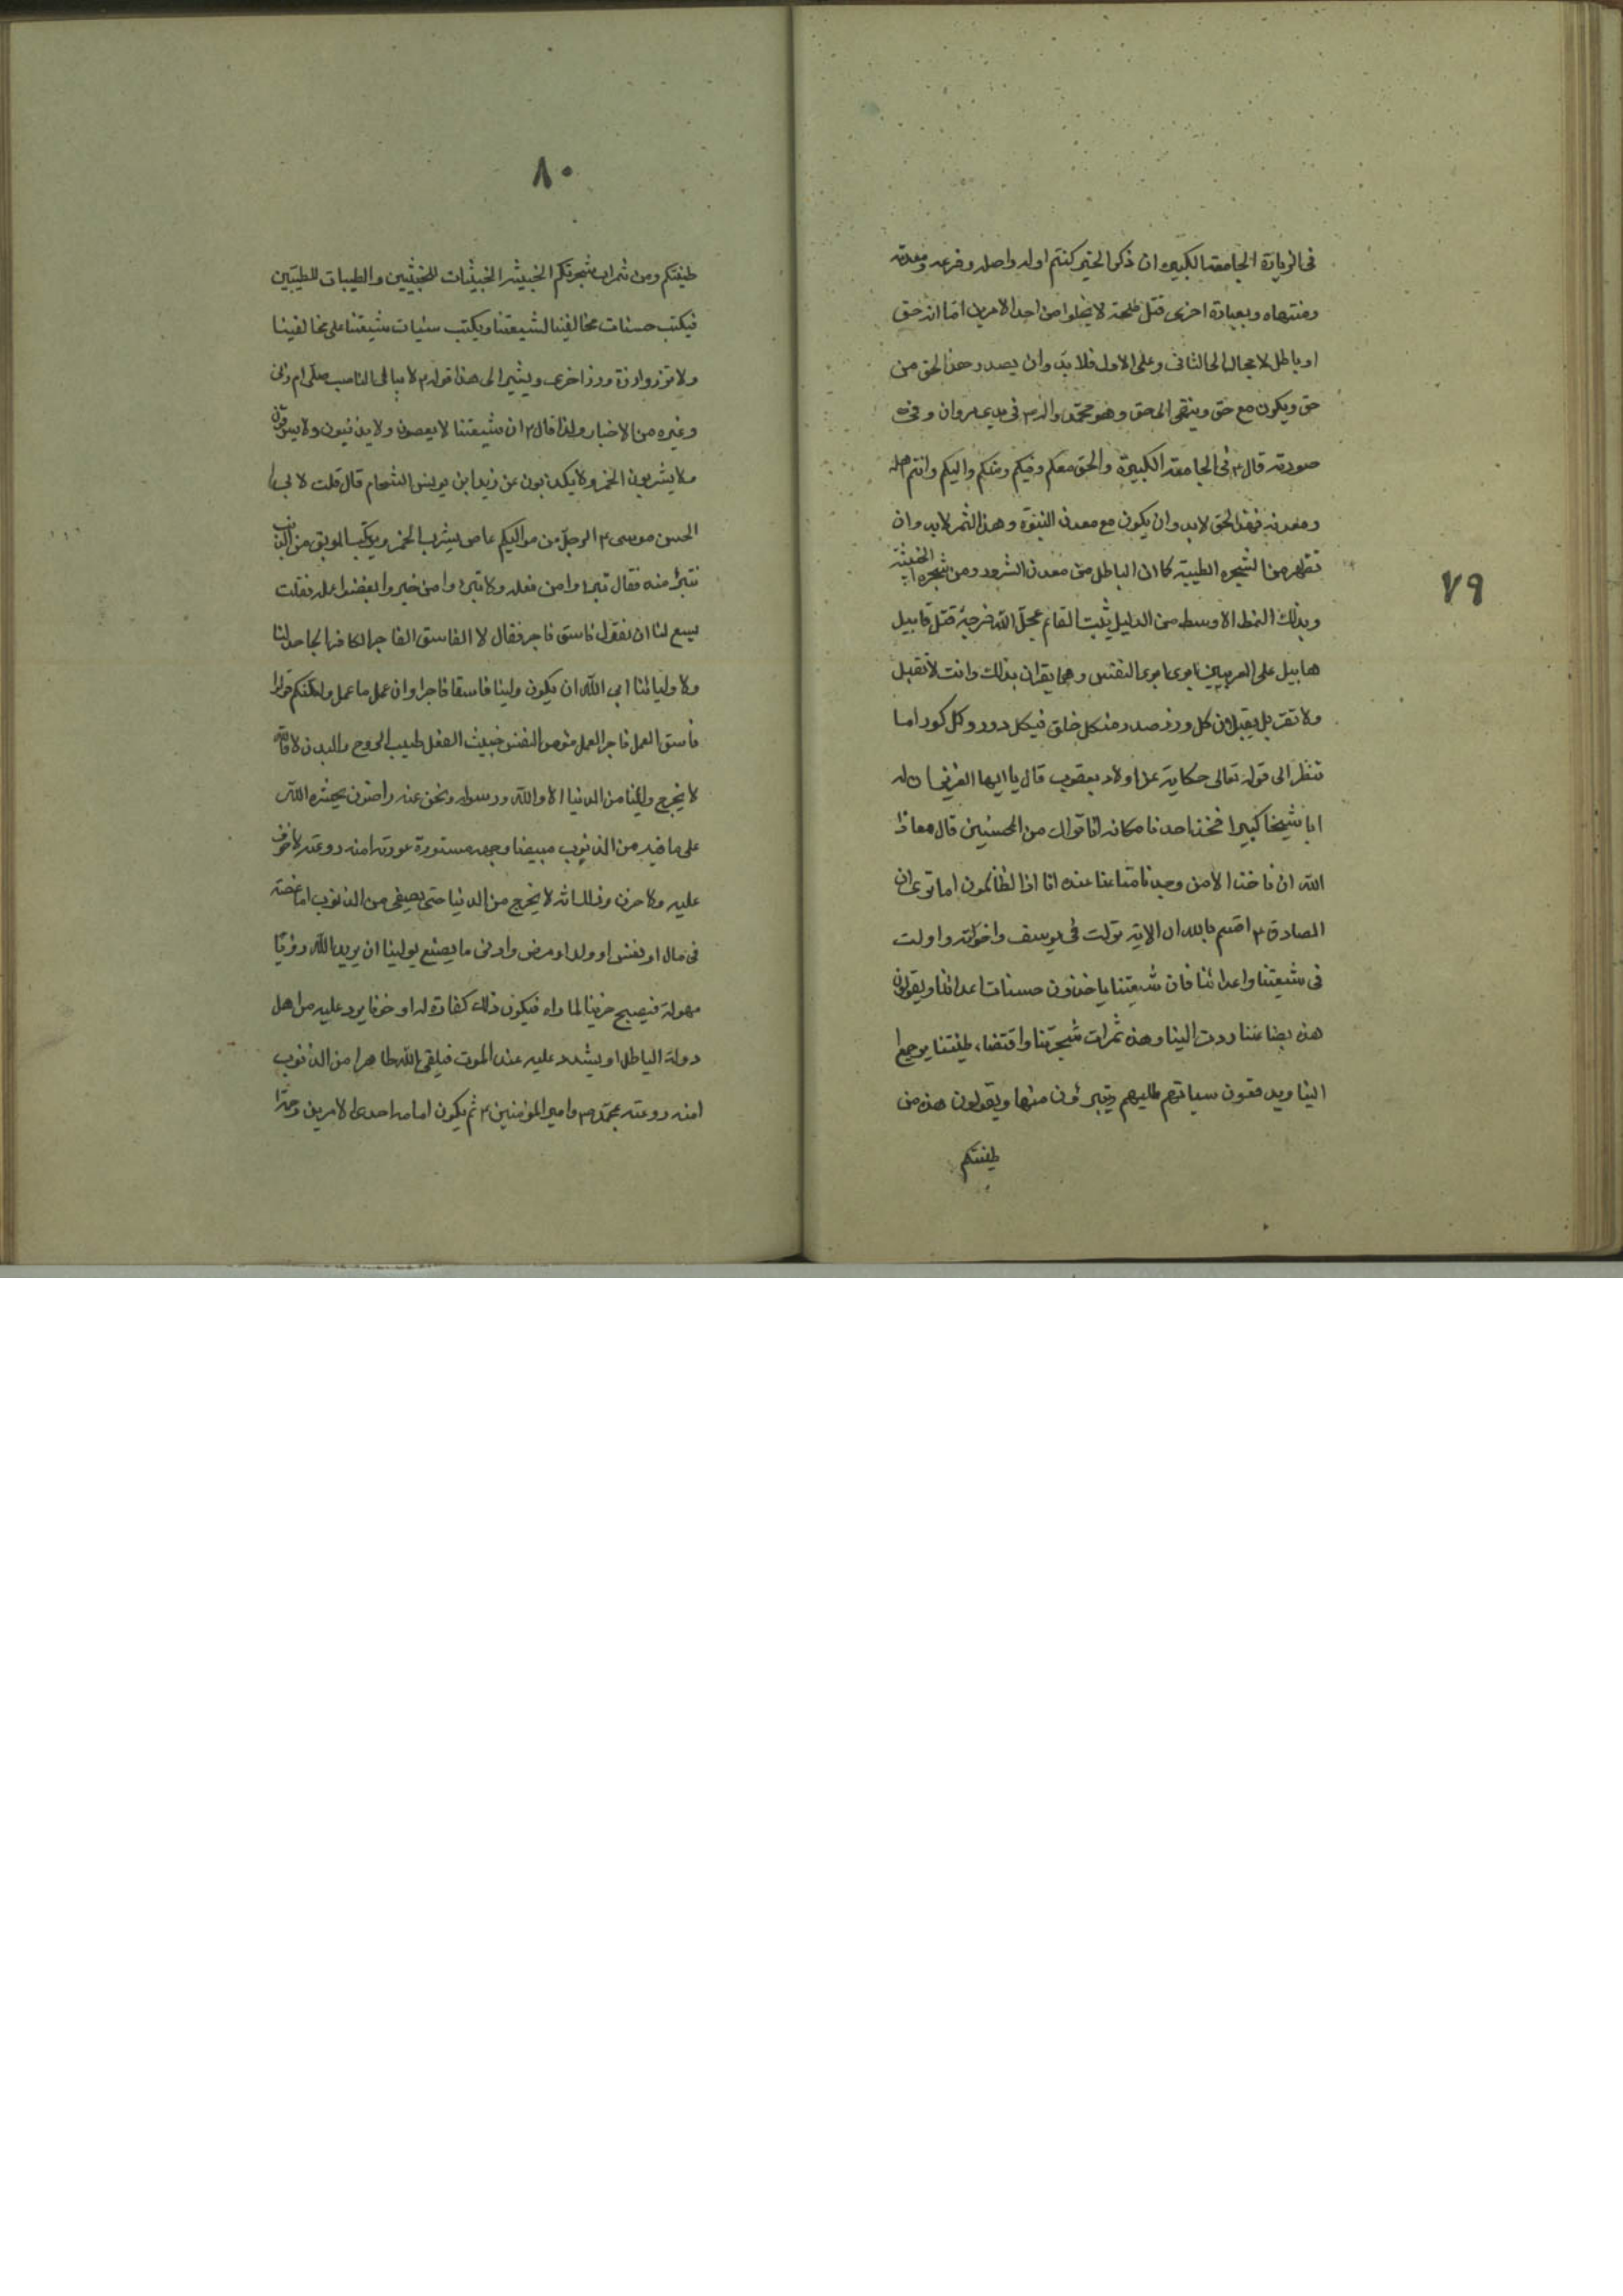 ٧٩
فى الزيارة الجامعة الكبيرة ان ذكر الخير كنتم اوله واصله وفرعه ومعدنه
ومنتهاه وبعبارة اخرى قتل طلحة لا يخلوا من احد الامرين اما انه حق
او باطل لا مجال الى الثانى وعلى الاول فلا بد وان يصدر هذا الحق من
حق ويكون مع حق وينتهى الى حق وهو محمد واله ٣ فى
صورته قال ٣ فى الجامعة الكبيرة والحق معكم وفيكم ومنكم واليكم وانتم اهله
ومعدنه فهذا الحق لا بد وان يكون مع معدن النبوة وهذا الثمر لا بد وان
تظهر من الشجره الطيبة كما ان الباطل من معدن الشرور ومن شجره الخبيثة
وبذلك النمط الاوسط من الدليل يثبت القائم عجل الله فرجه قتل قابيل
هابيل على وهما يقران بذلك وانت لا تقبل
ولا تقر بل يقبلان كل وزر صدر من كل خلق فى كل دور وكل كور اما
تنظر الى قوله تعالى حكاية عن اولاد يعقوب قال يا ايها العزيز ان له
ابا شيخا كبيرا فخذ احدنا مكانه انا نراك من المحسنين قال معاذ
الله ان ناخذ الا من وجدنا متاعنا عنده انا اذا لظالمون اما ترى ان
الصادق ٣ اقسم بالله ان الاية نزلت فى يوسف واخوته واولت
فى شيعتنا واعدائنا فان شيعتنا ياخذون حسنات اعدائنا ويقولون
هذه بضاعتنا ردت الينا وهذه ثمرات شجرتنا واقتضاء طينتنا يرجع
الينا ويدفعون سياتهم اليهم ويتبرؤن منها ويقولون هذه من
طينتكم
٨٠
طينتكم ومن ثمرات شجرتكم الخبيثة الخبيثات للخبيثين والطيبات للطيبين
فيكتب حسنات مخالفينا لشيعتنا ويكتب سيئات شيعتنا على مخالفينا
ولا تزر وازرة وزر اخرى ويشير الى هذا قوله ٣ لا يبالى الناصب صلى ام زنى
وغيره من الاخبار ولذا قال ٣ ان شيعتنا لا يعصون ولا يذنبون ولا يسرقون
ولا يشربون الخمر ولا يكذبون عن زيد ابن يونس الشحام قال قلت لابى
الحسن موسى ٣ الرجل من مواليكم عاص يشرب الخمر ويرتكب الموبق من الذنب
نتبرء منه فقال تبرءوا من فعله ولا تبرءوا من خيره وابغضوا عمله فقلت
يسع لنا ان نقول فاسق فاجر فقال لا الفاسق الفاجر الكافر الجاحد لنا
ولاوليائنا ابى الله ان يكون ولينا فاسقا فاجرا وان عمل ما عمل ولكنكم قولوا
فاسق العمل فاجر العمل مؤمن النفس خبيث الفعل طيب الروح والبدن لا والله
لا يخرج ولينا من الدنيا الا والله ورسوله ونحن عنه راضون يحشره الله
على ما فيه من الذنوب مبيضا وجهه مستورة عورته امنه روعته لا خوف
عليه ولا حزن وذلك انه لا يخرج من الدنيا حتى يصفى من الذنوب اما بمصيبة
فى مال او نفس او ولد او مرض وادنى ما يصنع بولينا ان يريه الله رؤيا
مهولة فيصبح حزينا لما راه فيكون ذلك كفارة له او خوفا يرد عليه من اهل
دولة الباطل او يشدد عليه عند الموت فيلقى الله طاهرا من الذنوب
امنه روعته بمحمد ٣ وامير المؤمنين ٣ ثم يكون امامه احدى الامرين